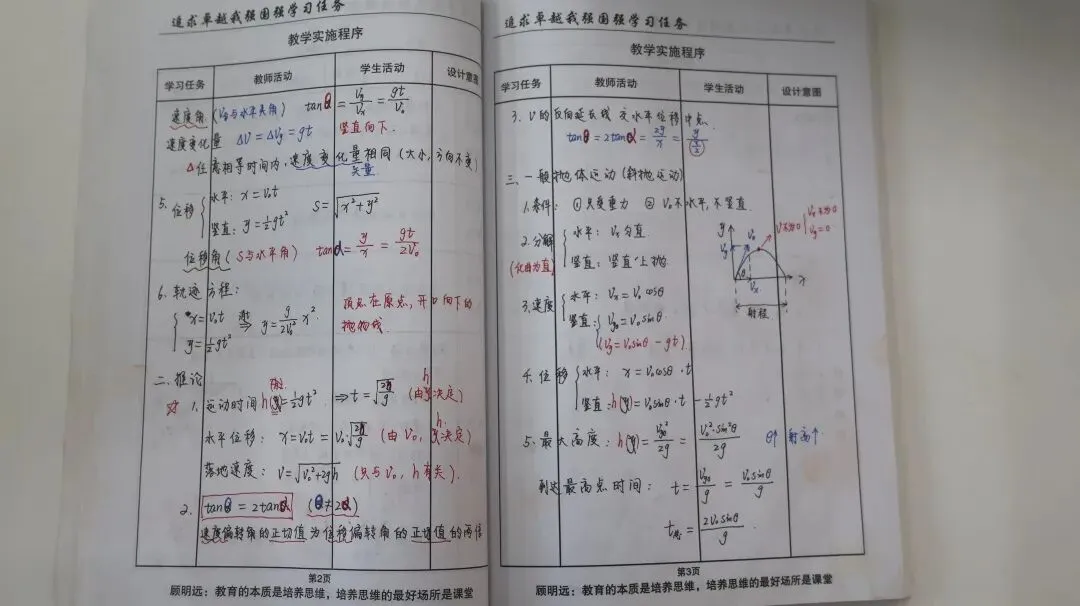 追求卓越我强国强学习任务
教学实施程序
学习任务 教师活动 学生活动 设计意图
速度角(V合与水平夹角) tanθ = Vy/Vx = gt/V₀
速度变化量 ΔV = ΔVy = gt 竖直向下.
△任意相等时间内, 速度变化量相同(大小, 方向不变)
矢量
5. 位移 { 水平: x = V₀t
竖直: y = ½gt² S = √(x²+y²)
位移角(S与水平角) tanα = y/x = gt/2V₀
6. 轨迹方程:
{ x = V₀t
y = ½gt² ⇒ y = g/2V₀² x². 顶点在原点, 开口向下的
抛物线.
二. 推论
☆ 1. 运动时间 h(y) = ½gt² ⇒ t = √(2h/g) (由h决定)
水平位移: x = V₀t = V₀·√(2h/g) (由V₀, h决定)
落地速度: V = √(V₀²+2gh) (只与V₀, h有关).
2. tanθ = 2tanα (θ≠2α)
速度偏转角的正切值为位移偏转角的正切值的两倍
第2页
顾明远：教育的本质是培养思维，培养思维的最好场所是课堂
追求卓越我强国强学习任务
教学实施程序
学习任务 教师活动 学生活动 设计意图
3. V的反向延长线 交水平位移中点.
tanθ = 2tanα = 2y/x = y/(x/2)
三. 一般抛体运动(斜抛运动)
1. 条件: ① 只受重力 ② V₀不水平, 不竖直.
2. 分解 { 水平: Vx匀直
(化曲为直) 竖直: 竖直上抛
y Vy V₀ θ Vx x
V不为0 { Vx不为0
Vy=0
射程
3. 速度 { 水平: Vx = V₀cosθ
竖直: { Vy₀ = V₀sinθ
Vy = V₀sinθ - gt.
4. 位移 { 水平: x = V₀cosθ·t
竖直: h(y) = V₀sinθ·t - ½gt²
5. 最大高度: h(y) = Vy₀²/2g = V₀²·sin²θ/2g θ↑ 射高↑
到达最高点时间: t = Vy₀/g = V₀sinθ/g
t总 = 2V₀sinθ/g.
第3页
顾明远：教育的本质是培养思维，培养思维的最好场所是课堂